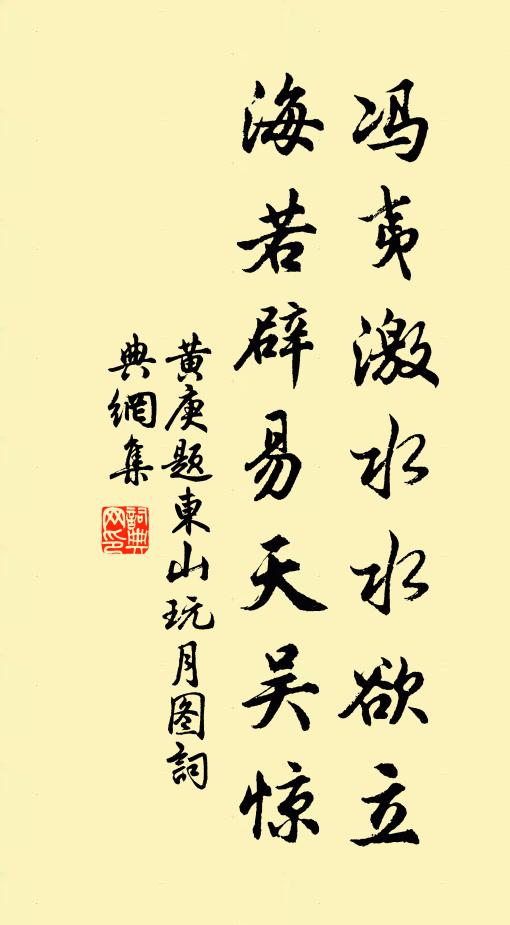 冯夷激水水欲立
海若辟易天吴惊
黄庚题東山玩月图詞
典網集
詞典网印